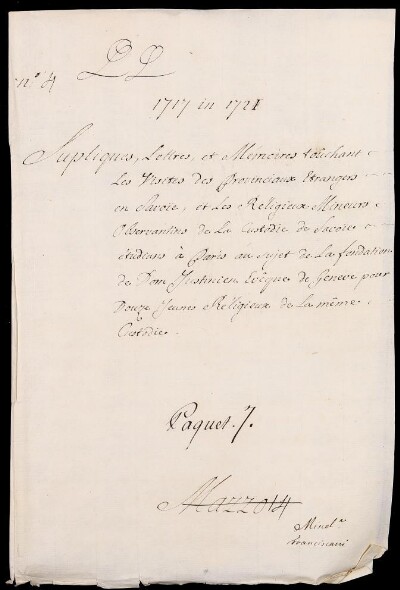 P L
n.º 4
1717 in 1721
Supliques, Lettres, et Memoires touchant
Les Visites des Provinciaux Etrangers
en Savoie, et Les Religieux Mineurs
Observantins de La Custodie de Savoie
étudians à Paris au sujet de La fondation
de Dom Justinien Evêque de Geneve pour
Douze Jeunes Religieux de La même
Custodie.
Paquet. 7.
Mazzo 14
Minel.ⁿⁱ
Franciscani